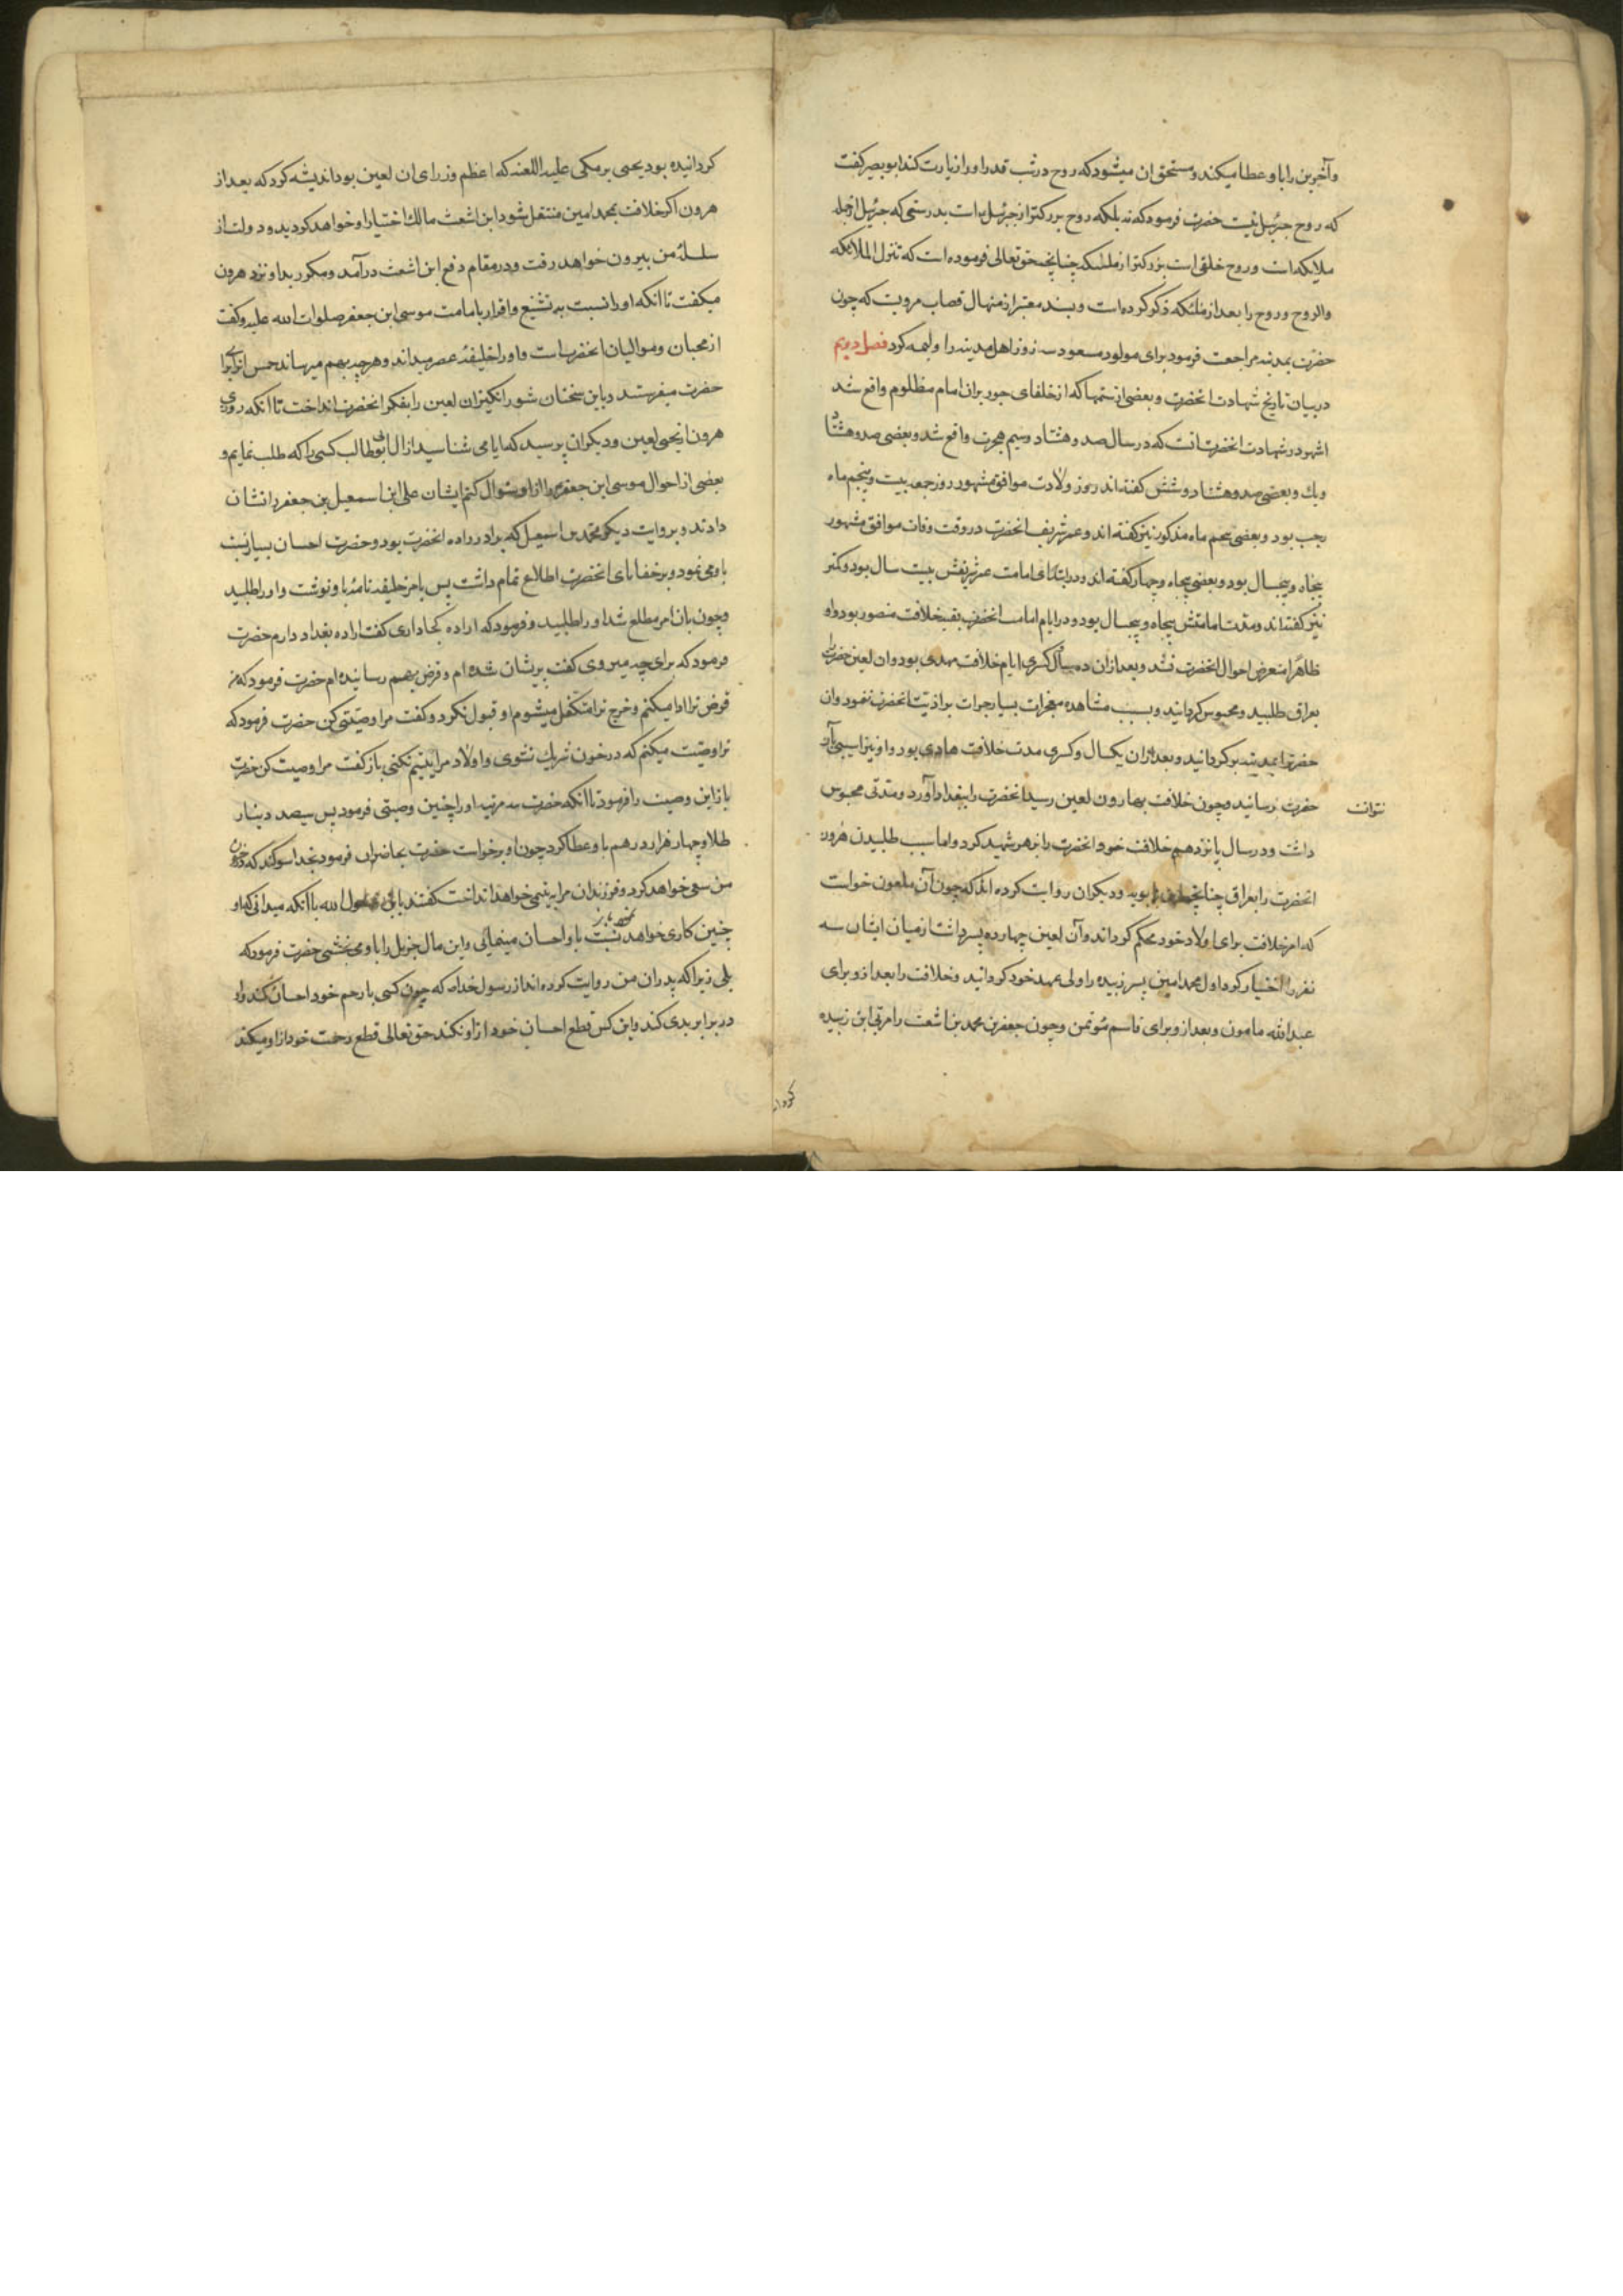 وآخرین را باو عطا میکند و مستحق ان میشود که روح در شب قدر او را زیارت کند ابو بصیر کفت
که روح جبرئیل نیست حضرت فرمود که نه بلکه روح بزرکتر از جبرئیل است بدرستی که جبرئیل از جمله
ملایکه است و روح خلقی است بزرکتر از ملئکه چنانچه حق تعالی فرموده است که تنزل الملائکه
والروح و روح را بعد از ملئکه ذکر کرده است و بسند معتبر از منهال قصاب مرویت که چون
حضرت بمدینه مراجعت فرمود برای مولود مسعود سه روز اهل مدینه را ولیمه کرد فصل دویم
در بیان تاریخ شهادت انحضرت و بعضی از ستمها که از خلفای جور بران امام مظلوم واقع شد
اشهر در شهادت انحضرت انست که در سال صد و هشتاد و سیم هجرت واقع شد و بعضی صد و هشتاد
و یك و بعضی صد و هشتاد و شش کفته اند و روز ولادت موافق مشهور روز جمعه بیست و پنجم ماه
رجب بود و بعضی پنجم ماه مذکور نیز کفته اند و عمر شریف انحضرت در وقت وفات موافق مشهور
پنجاه و پنجسال بود و بعضی پنجاه و چهار کفته اند و در ابتدای امامت عمر شریفش بیست سال بود و کمتر
نیز کفته اند و مدت امامتش پنجاه و پنجسال بود و در ایام امامت انحضرت بقیه خلافت منصور بود و او
ظاهرا متعرض احوال انحضرت نشد و بعد از ان ده سال و کسری ایام خلافت مهدی بود و ان لعین حضرترا
بعراق طلبید و محبوس کردانید و بسبب مشاهده معجزات بسیار جرات بر اذیت انحضرت ننمود و ان
حضرترا بمدینه بر کردانید و بعد از ان یکسال و کسری مدت خلافت هادی بود و او نیز اسیبی بان
حضرت نتوانست رسانید و چون خلافت بهارون لعین رسید انحضرت را ببغداد آورد و مدتی محبوس
داشت و در سال پانزدهم خلافت خود انحضرت را بزهر شهید کرد و اما سبب طلبیدن هرون
انحضرت را بعراق چنانچه ابن بابویه و دیکران روایت کرده اند که چون آن ملعون خواست
که امر خلافت برای اولاد خود محکم کرداند و آن لعین چهارده پسر داشت از میان ایشان سه
نفر را اختیار کرد اول محمد امین پسر زبیده را ولی عهد خود کردانید و خلافت را بعد از و برای
عبدالله مامون و بعد از و برای قاسم مؤتمن و چون جعفر بن محمد بن اشعث را مربی ابن زبیده
کردانیده بود یحیی برمکی علیه اللعنه که اعظم وزرای ان لعین بود اندیشه کرد که بعد از
هرون اکر خلافت بمحمد امین منتقل شود ابن اشعث مالك اختیار او خواهد کردید و دولت از
سلسلۀ من بیرون خواهد رفت و در مقام دفع ابن اشعث در آمد و مکرر بد او نزد هرون
میکفت تا آنکه او را نسبت به تشیع و اقرار بامامت موسی ابن جعفر صلوات الله علیه و کفت
از محبان و موالیان انحضرتست و او را خلیفۀ عصر میداند و هر چه بهم میرساند خمس انرا برای
حضرت میفرستد و باین سخنان شور انکیز ان لعین را بفکر انحضرت انداخت تا آنکه روزی
هرون از یحیی لعین و دیکران پرسید که ایا می شناسید از ال ابوطالب کسی را که طلب نمایم و
بعضی از احوال موسی ابن جعفر را از او سئوال کنم ایشان علی ابن اسمعیل بن جعفر را نشان
دادند و بروایت دیکر محمد بن اسمعیل که برادر زاده انحضرت بود و حضرت احسان بسیار نسبت
باو می نمود و بر خفایای انحضرت اطلاع تمام داشت پس بامر خلیفه نامۀ باو نوشت و او را طلبید
و چون بان امر مطلع شد او را طلبید و فرمود که اراده کجا داری کفت اراده بغداد دارم حضرت
فرمود که برای چه میروی کفت پریشان شده ام و قرض بهم رسانیده ام حضرت فرمود که من
قرض ترا ادا میکنم و خرج ترا متکفل میشوم او قبول نکرد و کفت مرا وصیتی کن حضرت فرمود که
ترا وصیت میکنم که در خون من شریك نشوی و اولاد مرا یتیم نکنی باز کفت مرا وصیت کن حضرت
باز این وصیت را فرمود تا آنکه حضرت سه مرتبه او را چنین وصیتی فرمود پس سیصد دینار
طلا و چهار هزار درهم باو عطا کرد چون او برخواست حضرت بحاضران فرمود بخدا سوکند که در خون
من سعی خواهد کرد و فرزندان مرا به یتیمی خواهد انداخت کفتند یا ابن رسول الله با آنکه میدانی که او
چنین کاری خواهد باو احسان مینمائی و این مال جزیل را باو می بخشی حضرت فرمود که
بلی زیرا که پدران من روایت کرده اند از رسول خدا که چون کسی با رحم خود احسان کند و او
در برابر بدی کند و این کس قطع احسان خود از او نکند حق تعالی قطع رحمت خود از او میکند